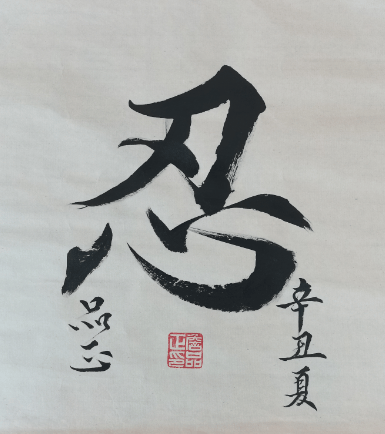 忍
辛丑夏
品正